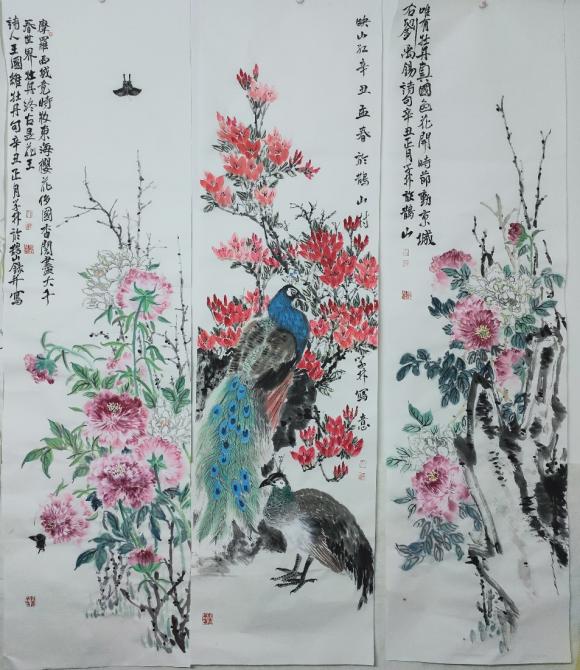 唯有牡丹真國色花開時節動京城
右劉禹錫詩句辛丑正月子卉於鵲山
映山紅辛丑孟春於鵲山村
子卉寫意
摩羅西域竟時妝東海櫻花侈國香閱盡大千
春世界牡丹終古是花王
詩人王國維牡丹句辛丑正月子卉於鵲山